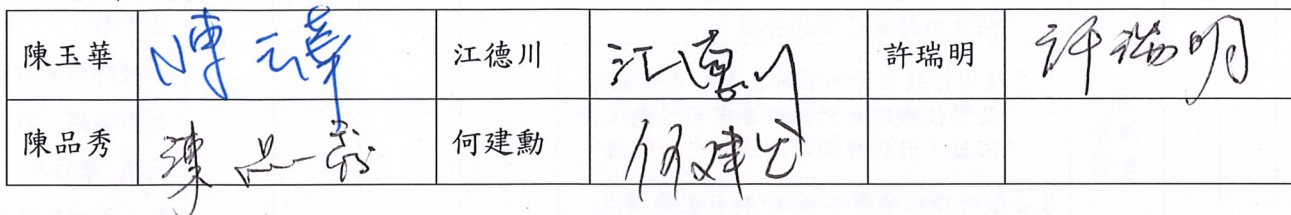 陳玉華 陳玉華 江德川 江德川 許瑞明 許瑞明
陳品秀 陳品秀 何建勳 何建勳